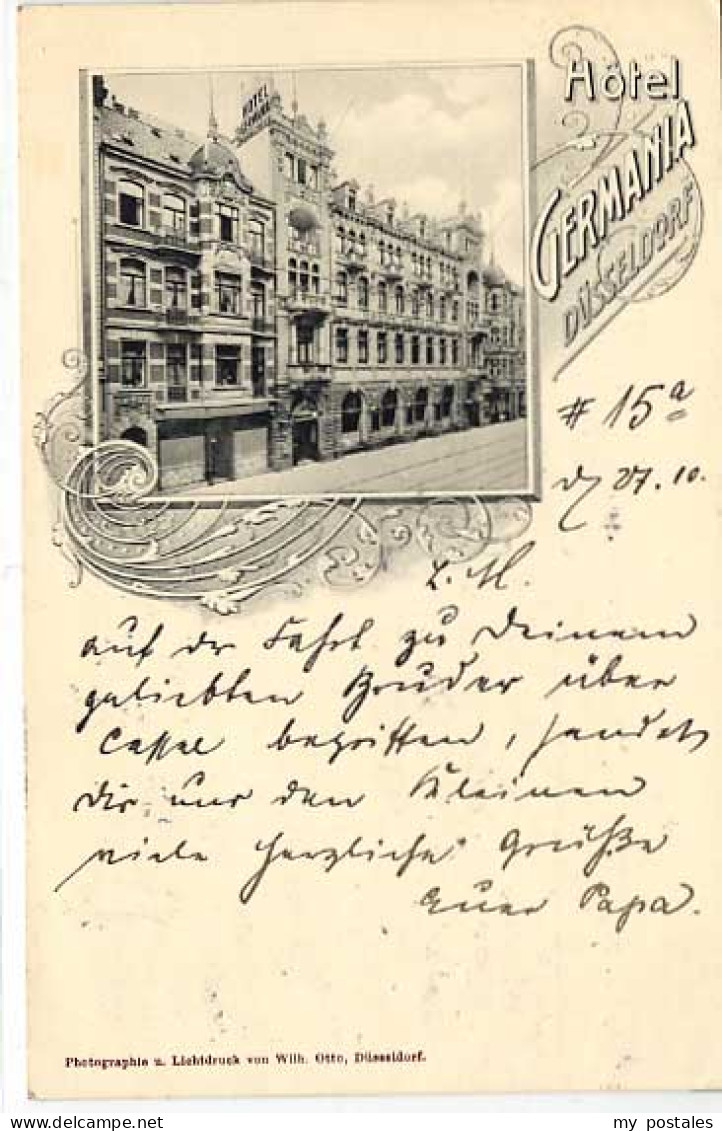 HOTEL
Hôtel
GERMANIA
DÜSSELDORF
# 15a
27.10.
L. M.
auf der Fahrt zu Deinem
geliebten Bruder über
Cassel begriffen, sendet
Dir und den Kleinen
viele herzliche Grüße
Euer Papa.
Photographie u. Lichtdruck von Wilh. Otto, Düsseldorf.
my postales